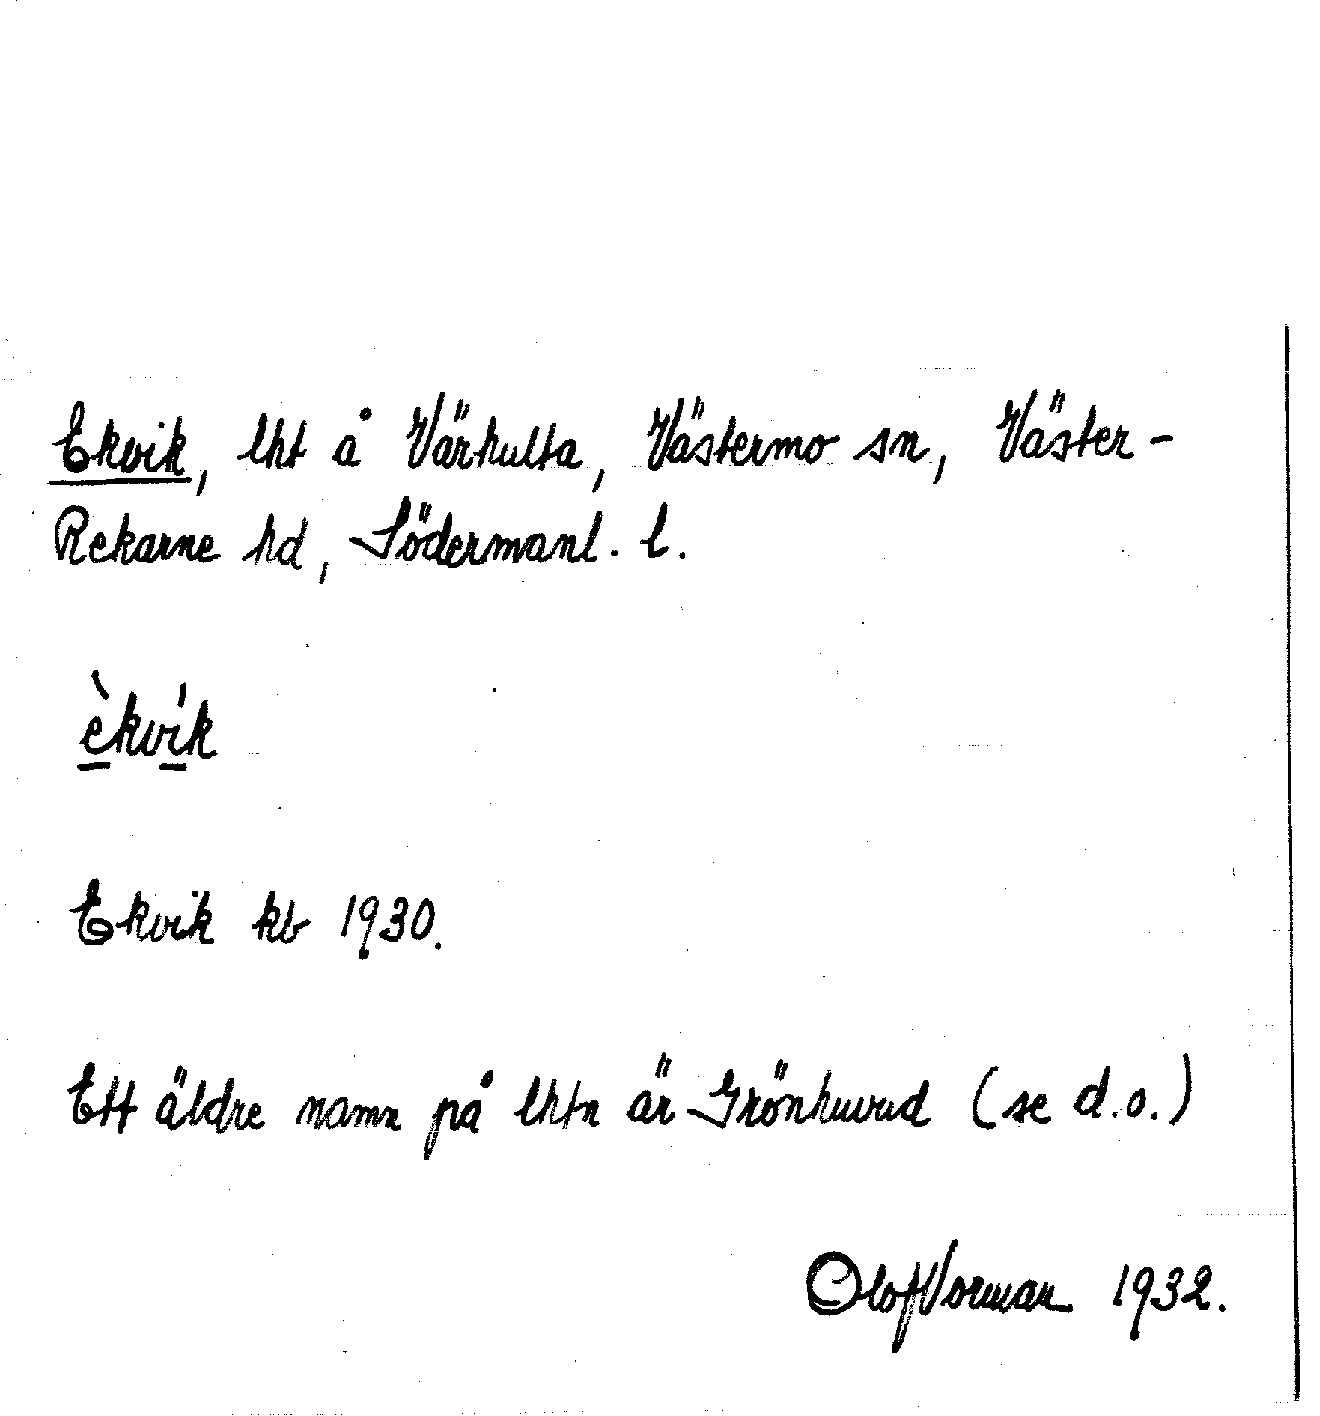 Ekvik, lht å Värhulta, Västermo sn, Väster-
Rekarne hd, Södermanl. l.
èkvík
Ekvik kb 1930.
Ett äldre namn på lhtn är Grönhuvud (se d.o.)
Olof Norman 1932.